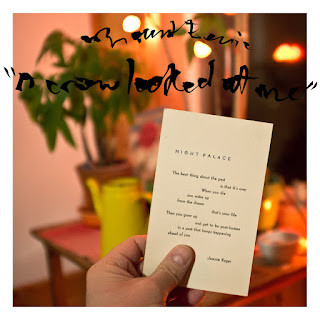 mount eerie
"a crow looked at me"
NIGHT PALACE
The best thing about the past
is that it's over
When you die
you wake up
from the dream
that's your life.
Then you grow up
and get to be post-human
in a past that keeps happening
ahead of you
Joanne Kyger